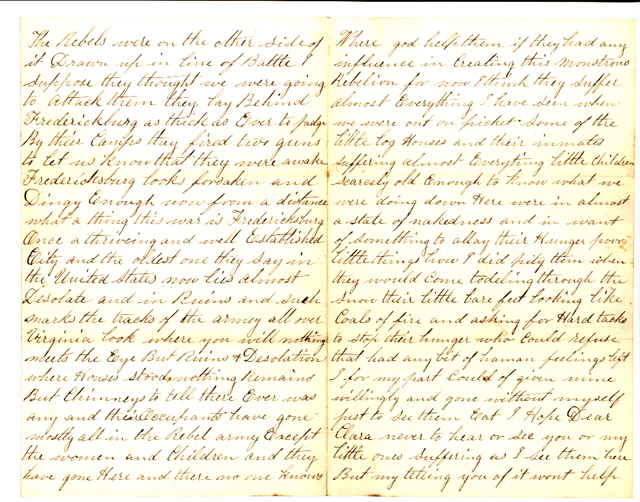 The Rebels were on the other side of
it Drawn up in line of Battle I
suppose they thought we were going
to attack them they lay Behind
Fredericksburg as thick as Ever to judge
By thier Camps they fired two guns
to let us know that they were awake
Fredericksburg looks forsaken and
Dingy Enough now from a distance
what a thing this war is Fredericksburg
Once a thriveing and well Established
City and the oldest one they say in
the United States now lies almost
Desolate and in Ruins and such
marks the tracks of the armey all over
Virginia look where you will nothing
meets the Eye But Ruins & Desolation
where Houses stood nothing Remains
But Chimneys to tell there Ever was
any and their Occupants have gone
mostly all in the Rebel army Except
the women and Children and they
have gone Here and there no one knows
Where god help them if they had any
influence in Creating this monstrous
Rebelion for now I think they suffer
almost Everything I have seen when
we were out on picket some of the
little Log Houses and their inmates
suffering almost Everything little Children
scarcely old Enough to know what we
were doing down Here were in almost
a state of nakedness and in want
of something to allay their Hunger poor
little things how I did pity them when
they would come todeling through the
snow their little bare feet looking like
Coals of fire and asking for Hard tacks
to stop their hunger who could refuse
that had any bit of human feelings left
I for my part Could of given mine
willingly and gone without myself
just to see them Eat I Hope Dear
Clara never to hear or see you or my
little ones suffering as I see them here
But my telling you of it wont help